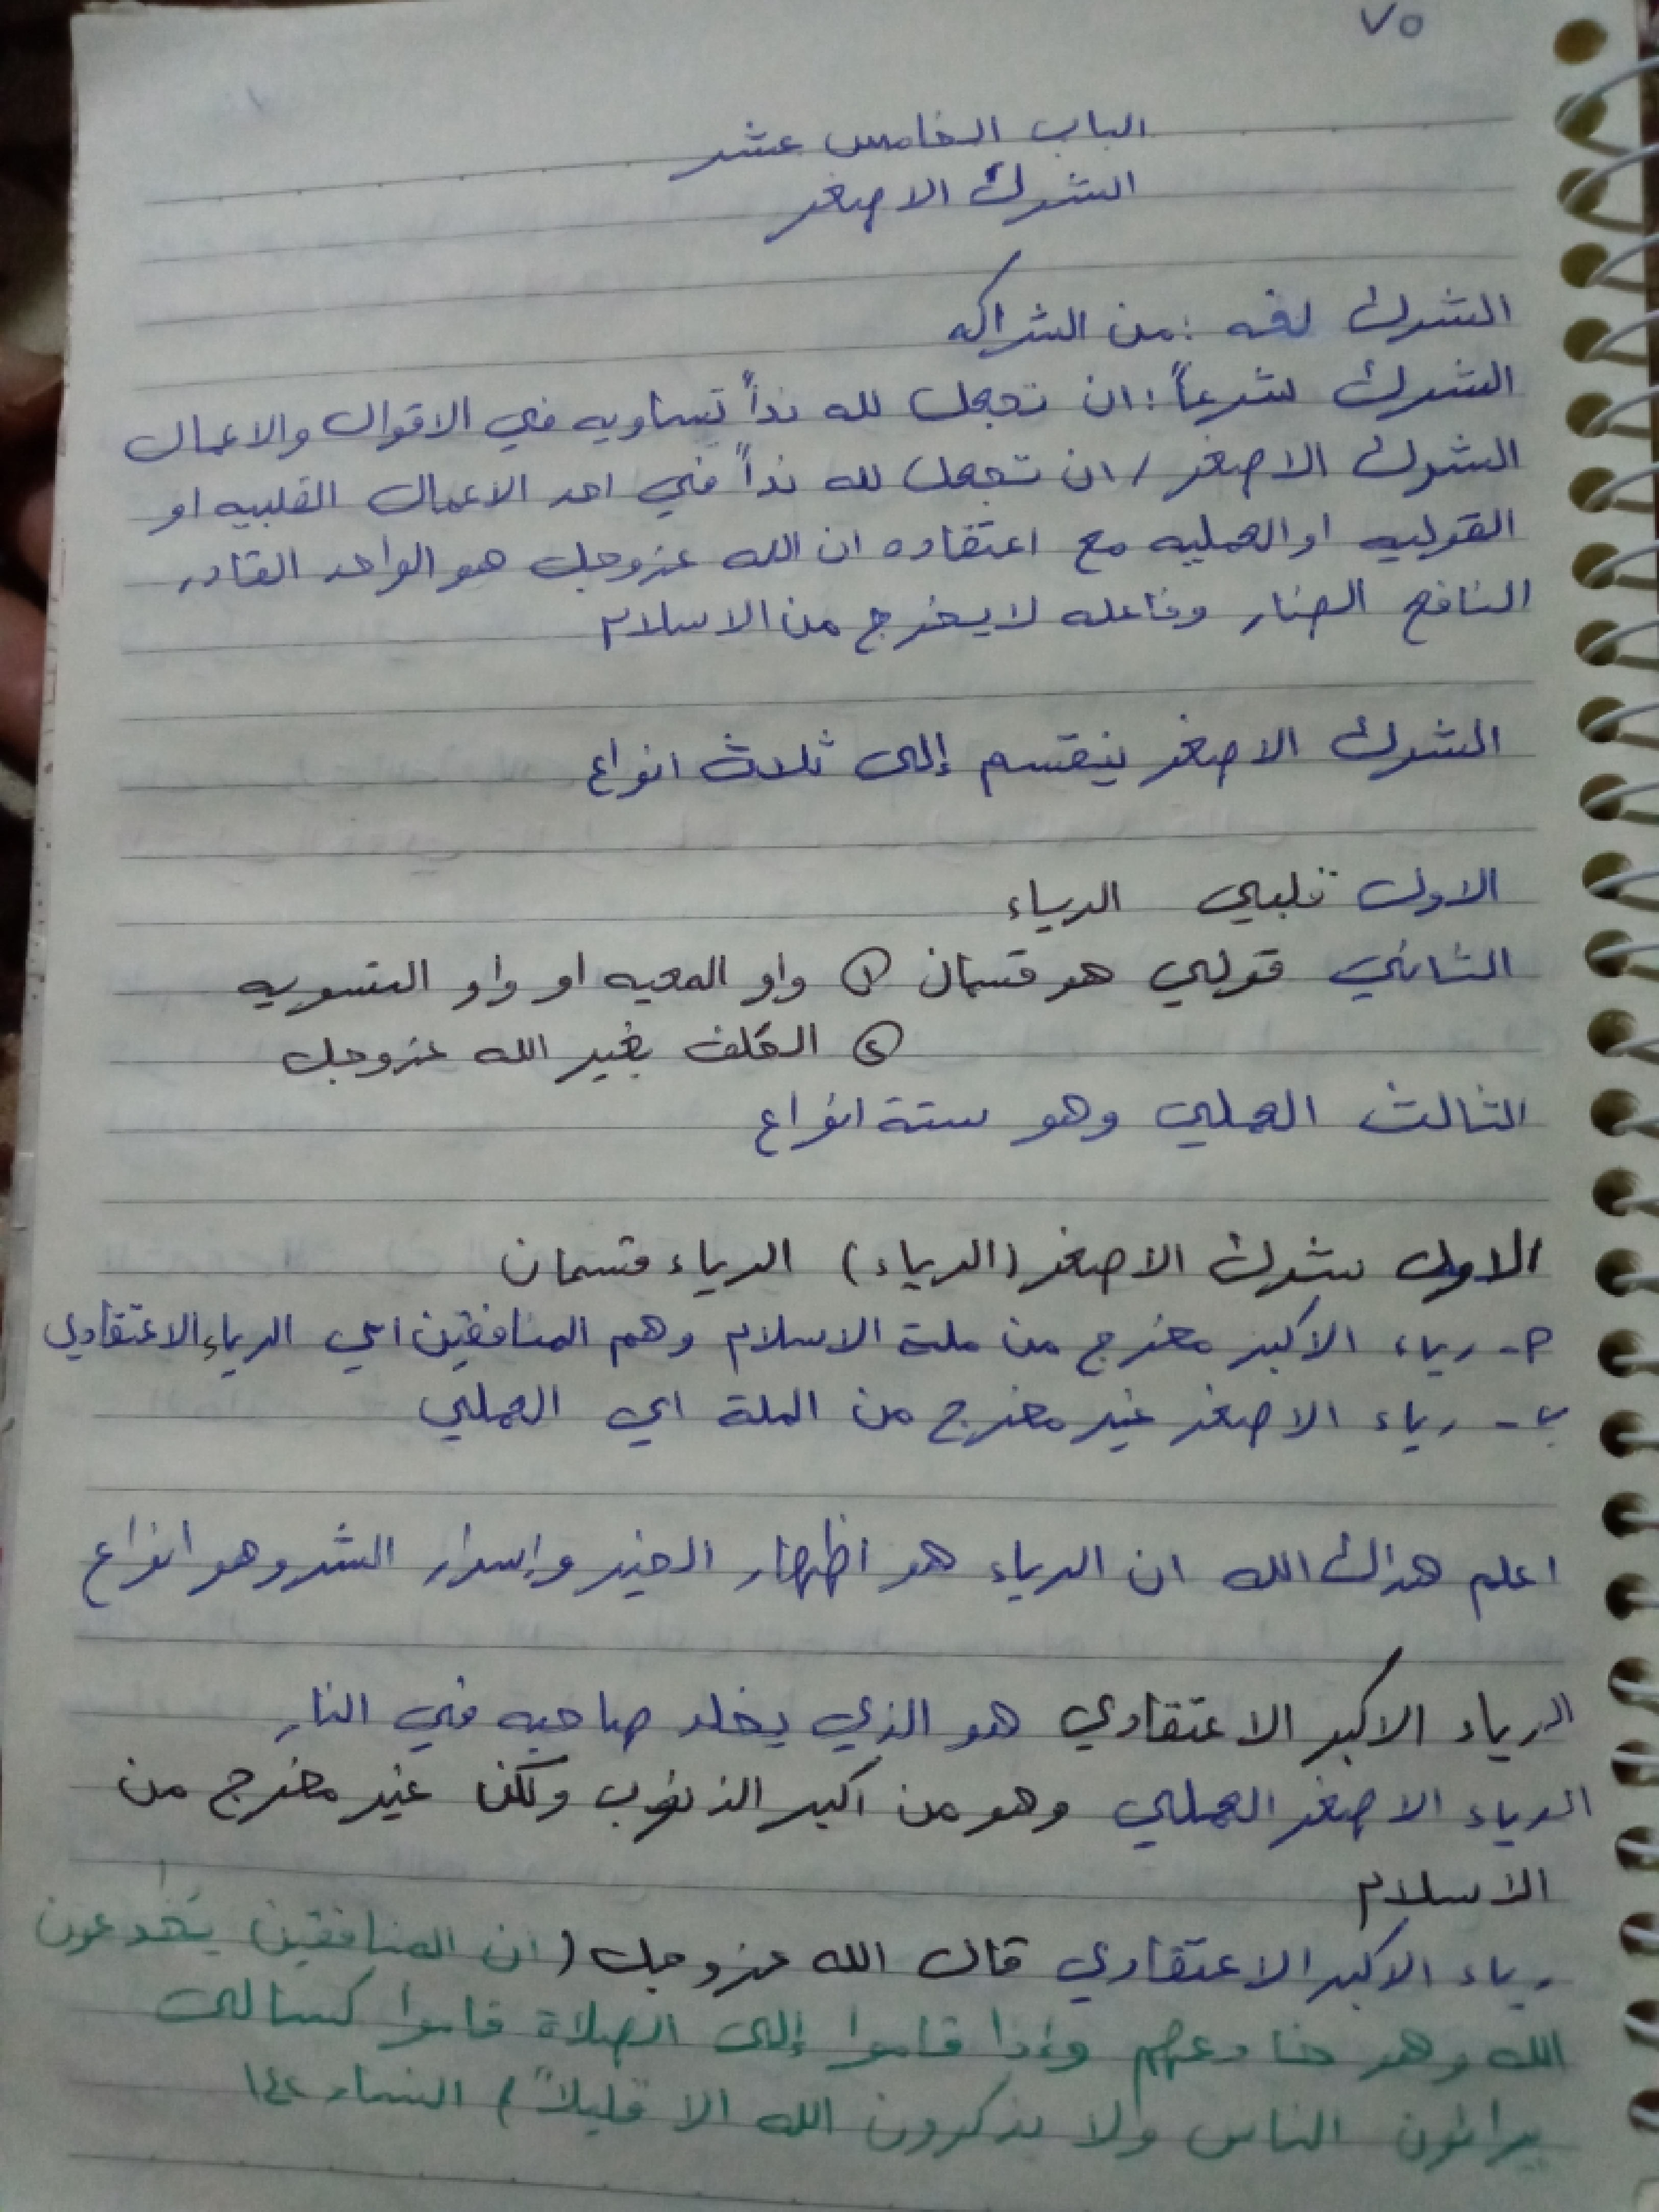 ٧٥
الباب الخامس عشر
الشرك الاصغر
الشرك لغه : من الشراكه
الشرك شرعاً : ان تجعل لله نداً تساويه في الاقوال والاعمال
الشرك الاصغر / ان تجعل لله نداً في احد الاعمال القلبيه او
القوليه او العمليه مع اعتقاده ان الله عزوجل هو الواحد القادر
النافع الضار وفاعله لا يخرج من الاسلام
الشرك الاصغر ينقسم إلى ثلاث انواع
الاول قلبي الرياء
الثاني قولي هو قسمان ① واو المعيه او واو التسويه
② الحلف بغير الله عزوجل
الثالث العملي وهو ستة انواع
الاول شرك الاصغر (الرياء) الرياء قسمان
م - رياء الاكبر مخرج من ملة الاسلام وهم المنافقين اي الرياء الاعتقادي
ب - رياء الاصغر غير مخرج من الملة اي العملي
اعلم هداك الله ان الرياء هو اظهار الخير واسرار الشر وهو انواع
الرياء الاكبر الاعتقادي هو الذي يخلد صاحبه في النار
الرياء الاصغر العملي وهو من اكبر الذنوب ولكن غير مخرج من
الاسلام
رياء الاكبر الاعتقادي قال الله عزوجل (ان المنافقين يخدعون
الله وهو خادعهم وإذا قاموا إلى الصلاة قاموا كسالى
يرائون الناس ولا يذكرون الله الا قليلاً) النساء ١٤٢